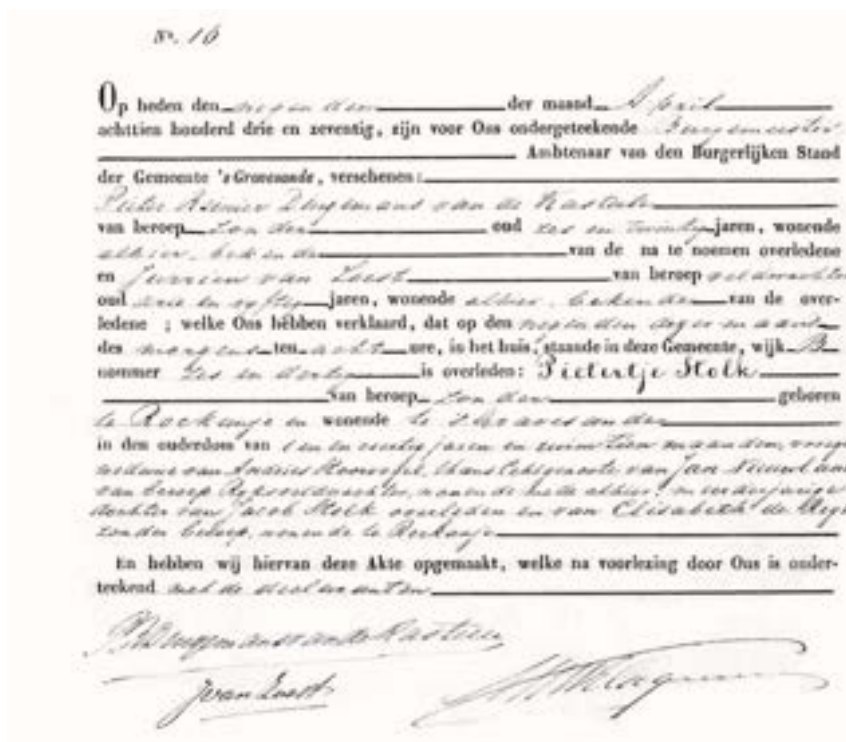 No. 16
Op heden den negenden der maand April
achttien honderd drie en zeventig, zijn voor Ons ondergeteekende Burgemeester
Ambtenaar van den Burgerlijken Stand
der Gemeente 's Gravesande, verschenen:
Pieter van de Kasteele
van beroep zonder oud zes en twintig jaren, wonende
alhier, bekende van de na te noemen overledene
en van Loest van beroep veldwachter
oud drie en vyftig jaren, wonende alhier, bekende van de over-
ledene ; welke Ons hebben verklaard, dat op den negenden dezer maand
des morgens ten acht ure, in het huis, staande in deze Gemeente, wijk B
nommer zes en dertig is overleden: Pietertje Stolk
van beroep zonder geboren
te Rockanje en wonende te s Gravesande
in den ouderdom van jaren en ruim tien maanden, vroeger
weduwe van Andries thans echtgenoote van Jan
van beroep wonende mede alhier, meerderjarige
dochter van Jacob Stolk overleden en van Elisabeth de
zonder beroep, wonende te Rockanje
En hebben wij hiervan deze Akte opgemaakt, welke na voorlezing door Ons is onder-
teekend met de declaranten
van de Kasteele
J van Loest